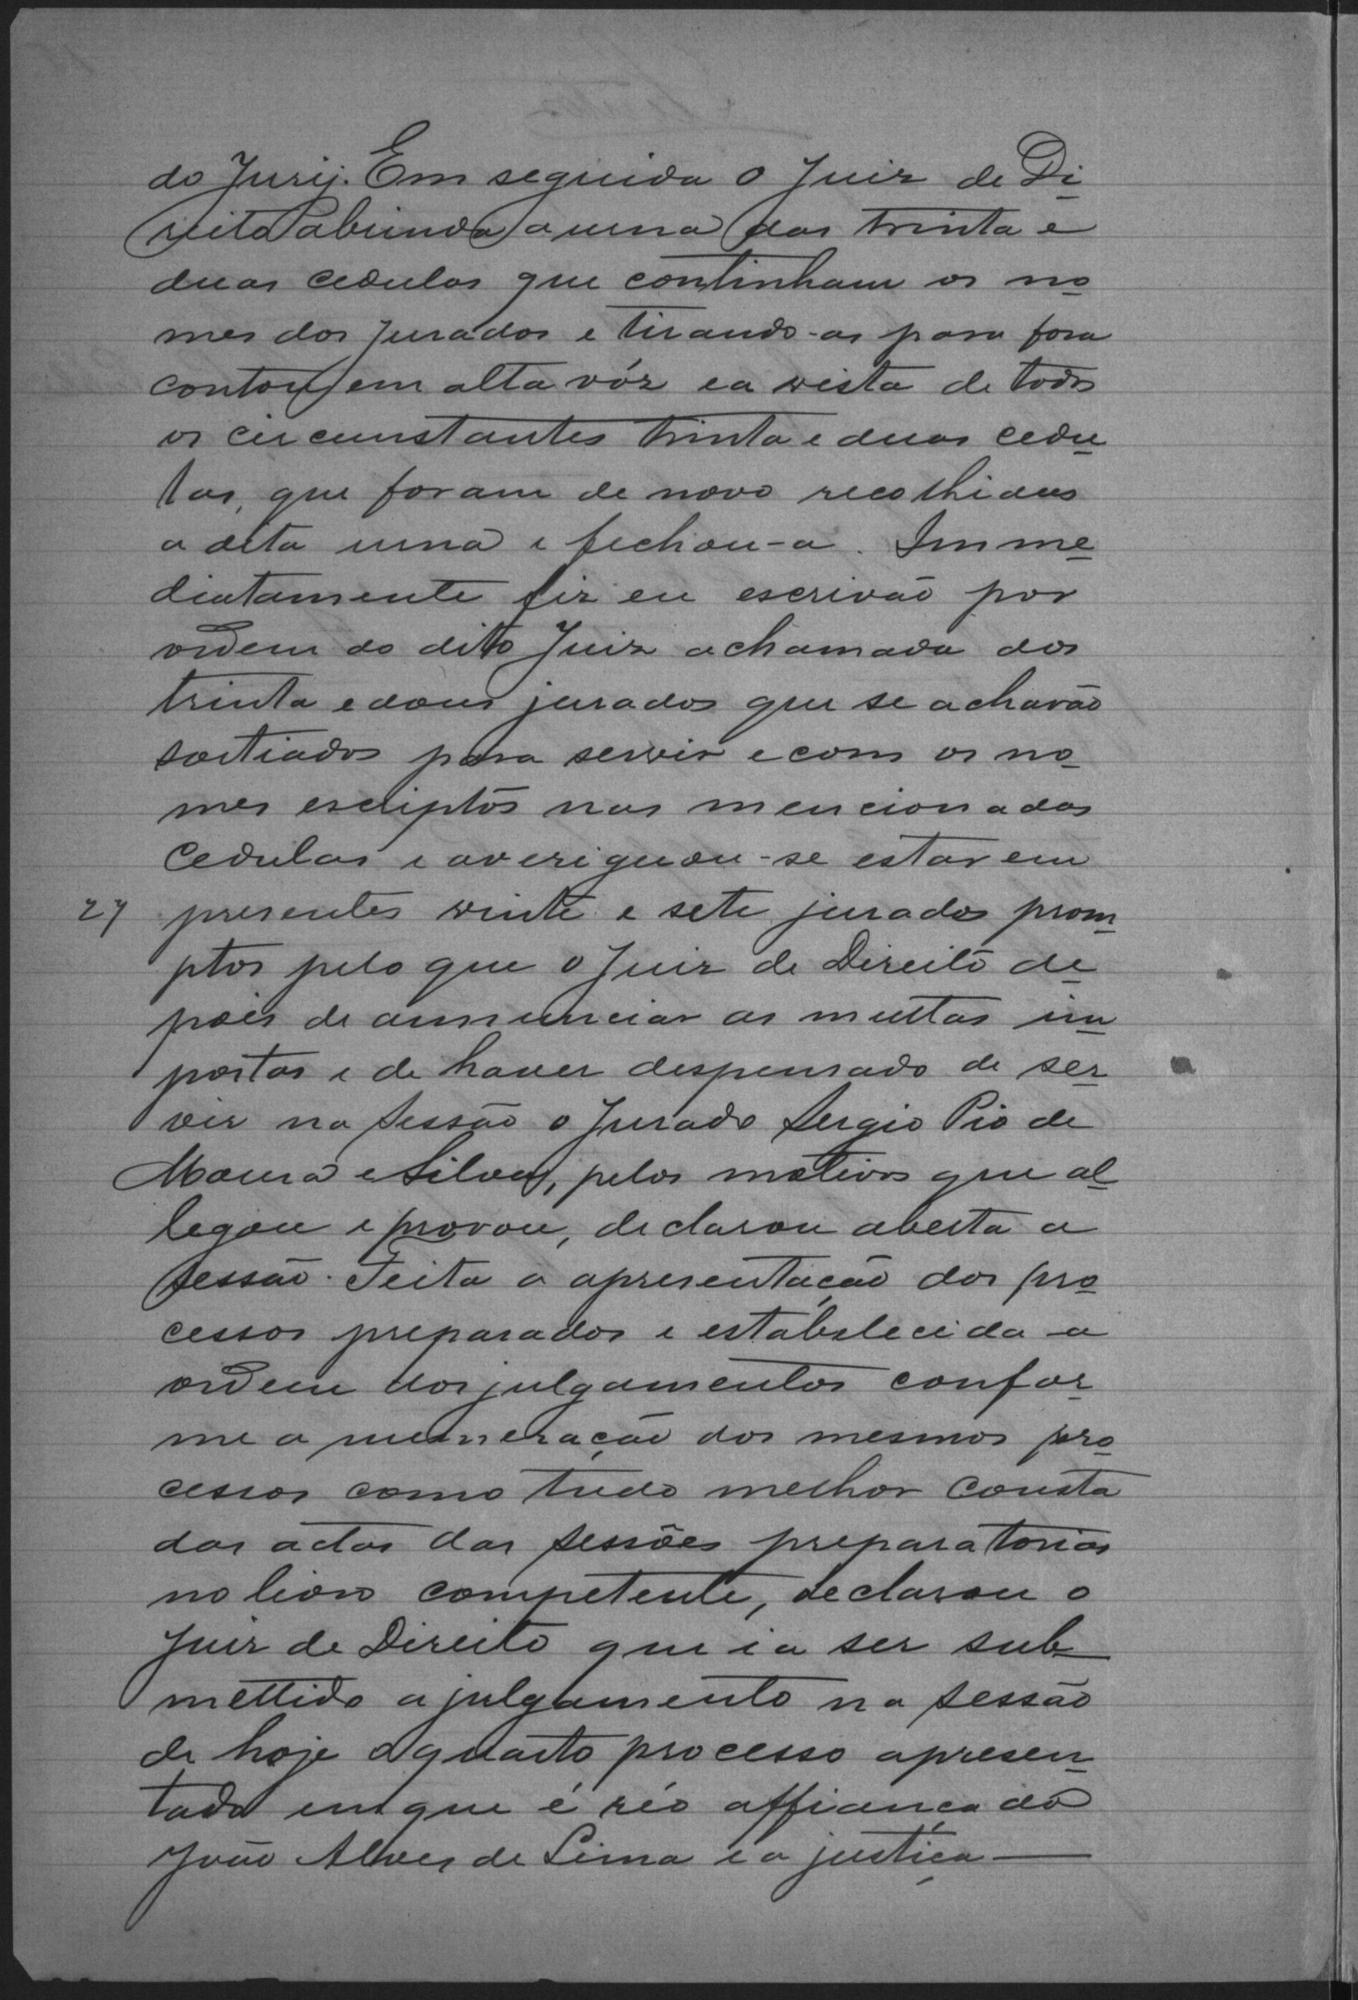 do Jury. Em seguida o Juiz de Di
reito abrindo a urna das trinta e
duas cedulas que continham os no
mes dos jurados e tirando-as para fora
contou em alta vóz e a vista de todos
os circunstantes trinta e duas cedu
las, que foram de novo recolhidas
a dita urna e fechou-a. Imme
diatamente fiz eu escrivão por
ordem do dito Juiz a chamada dos
trinta e dous jurados que se achavão
sortiados para servir e com os no
mes escriptos nas mencionadas
cedulas e averiguou-se estarem
27 presentes vinte e sete jurados prom
ptos pelo que o Juiz de Direito de
pois de annunciar as multas im
postas e de haver despensado de ser
vir na sessão o jurado Sergio Pio de
Moura e Silva, pelos motivos que al
legou e provou, declarou aberta a
sessão. Feita a apresentação dos pro
cessos preparados e estabelecida a
ordem dos julgamentos confor
me a numeração dos mesmos pro
cessos como tudo melhor consta
das actas das sessões preparatorias
no livro competente, declarou o
Juiz de Direito que ia ser sub
mettido a julgamento na sessão
de hoje o quarto processo apresen
tado em que é réo affiançado
João Alves de Lima e a justiça